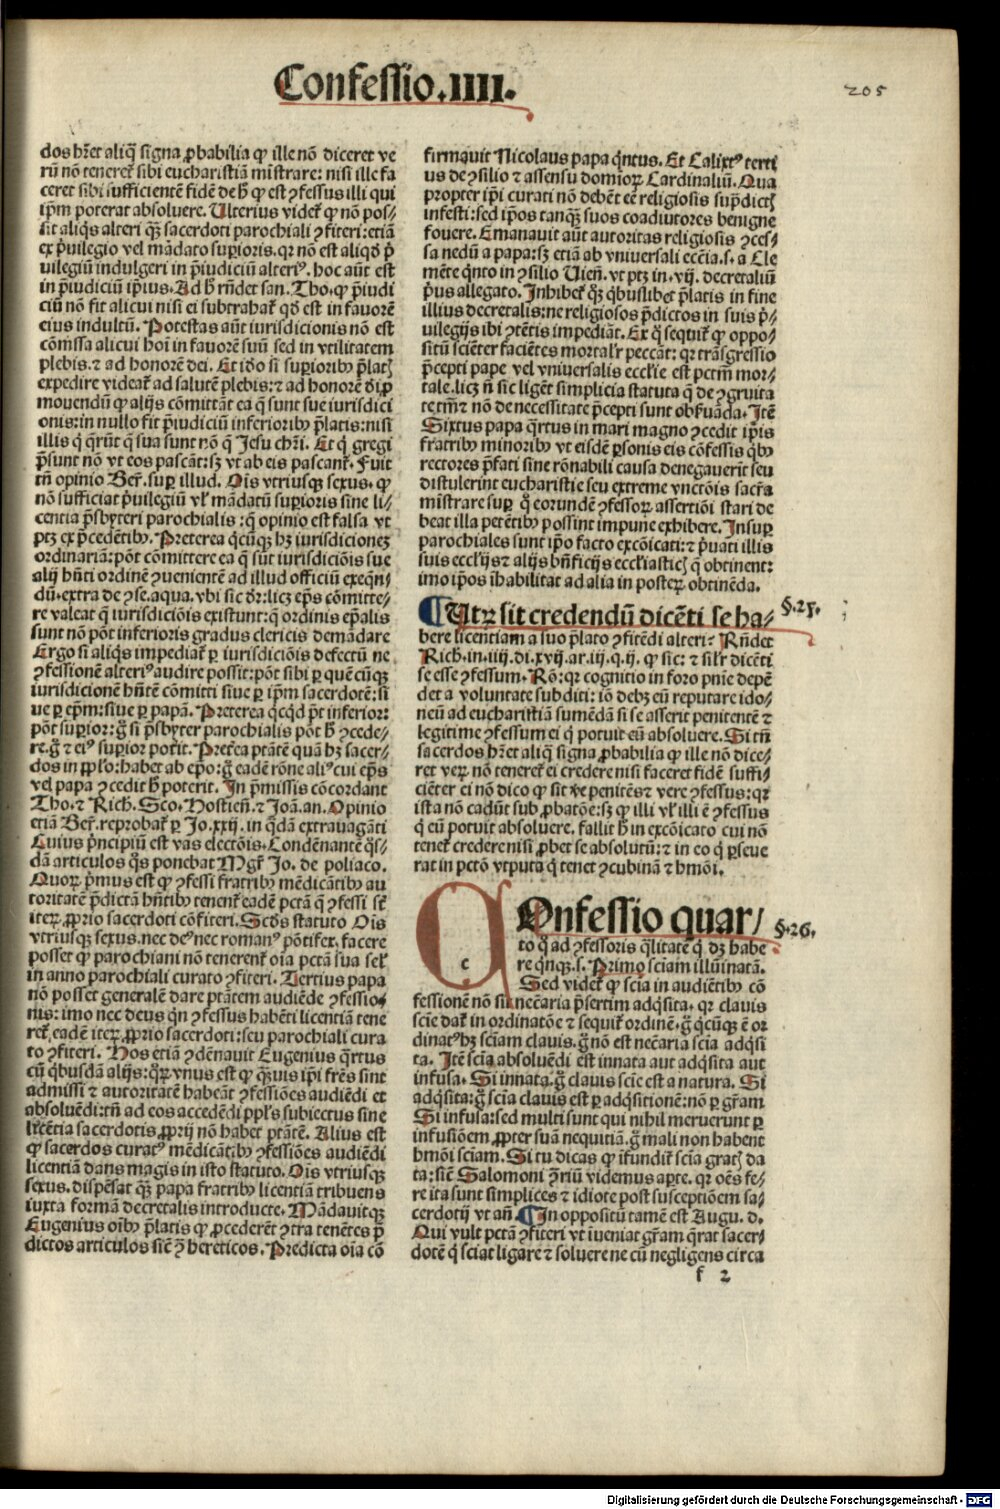 Confessio.IIII.
205
dos hr̃et aliq̃ signa ꝓbabilia ꝙ ille nõ diceret ve
rũ nõ teneret̃ sibi eucharistiã mĩstrare: nisi ille fa
ceret sibi sufficientẽ fidẽ de h̃ ꝙ est ꝯfessus illi qui
ip̃m poterat absoluere. Ulterius videt̃ ꝙ nõ pos/
sit aliq̃s alteri q̃ꝫ sacerdoti parochiali ꝯfiteri: etiã
ex p̃uilegio vel mãdato sup̃ioris. qr nõ est aliqd̃ p̃
uilegiũ indulgeri in p̃iudiciũ alteriꝰ. hoc aũt est
in p̃iudiciũ ip̃ius. Ad h̃ rñdet san. Tho. ꝙ p̃iudi
ciũ nõ fit alicui nisi ei subtrahat̃ qd̃ est in fauorẽ
eius indultũ. Potestas aũt iurisdicionis nõ est
cõmissa alicui hoĩ in fauorẽ suũ sed in vtilitatem
plebis. ⁊ ad honorẽ dei. Et id̃o si sup̃iorib᷒ p̃latꝭ
expedire videat̃ ad salutẽ plebis: ⁊ ad honorẽ d̃i ꝓ
mouendũ ꝙ alijs cõmittãt ea q̃ sunt sue iurisdici
onis: in nullo fit p̃iudiciũ inferiorib᷒ p̃latis: nisi
illis q̃ q̃rũt q̃ sua sunt nõ q̃ Jesu chr̃i. Et q̃ gregi
p̃sunt nõ vt eos pascãt: sꝫ vt ab eis pascant̃. Fuit
tñ opinio Ber̃. suꝑ illud. Oĩs vtriusqꝫ sexus. ꝙ
nõ sufficiat p̃uilegiũ vl̃ mãdatũ sup̃ioris sine li/
centia p̃sbyteri parochialis: q̃ opinio est falsa vt
ptꝫ ex p̃cedẽtib᷒. Preterea q̃cũqꝫ hꝫ iurisdicionẽ
ordinariã: põt cõmittere ea q̃ sũt iurisdiciõis sue
alij hñti ordinẽ ꝯuenientẽ ad illud officiũ exeqñ/
dũ. extra de ꝯse. aqua. vbi sic dr̃: licꝫ ep̃s cõmitte/
re valeat q̃ iurisdiciõis existunt: q̃ ordinis ep̃alis
sunt nõ põt inferioris gradus clericis demãdare
Ergo si aliq̃s impediat̃ ꝑ iurisdiciõis defectũ ne
ꝯfessionẽ alteriꝰ audire possit: põt sibi ꝑ quẽcũqꝫ
iurisdicionẽ hñtẽ cõmitti siue ꝑ ip̃m sacerdotẽ: si
ue ꝑ ep̃m: siue ꝑ papã. Preterea qcq̃d p̃t inferior:
põt sup̃ior: g̃ si p̃sbyter parochialis põt h̃ ꝯcede/
re. g̃ ⁊ eiꝰ sup̃ior potit. Pret̃ea ptãtẽ quã hꝫ sacer/
dos in ꝓp̃lo: habet ab ep̃o: g̃ eadẽ rõne aliꝰ cui ep̃s
vel papa ꝯcedit h̃ poterit. In p̃missis cõcordant
Tho. ⁊ Rich. Sco. Hostieñ. ⁊ Joã. an. Opinio
etiã Ber̃. reprobat̃ ꝑ Jo. xxij. in q̃dã extrauagãti
Cuius p̃ncipiũ est vas electõis. Condẽnantẽ q̃s/
dã articulos q̃s ponebat Mgr̃ Jo. de poliaco.
Quoꝝ p̃mus est ꝙ ꝯfessi fratrib᷒ mẽdicãtib᷒ au
toritatẽ p̃dictã hñtib᷒ tenent̃ eadẽ pctã q̃ ꝯfessi st̃
iteꝝ ꝓprio sacerdoti cõfiteri. Scd̃s statuto Oĩs
vtriusqꝫ sexus. nec deꝰ nec romanꝰ põtifex. facere
posset ꝙ parochiani nõ tenerent̃ oĩa pctã sua sel̃
in anno parochiali curato ꝯfiteri. Tertius papa
nõ posset generalẽ dare ptãtem audiẽde ꝯfessio/
nis: imo nec deus qñ ꝯfessus habẽti licentiã tene
ret̃ eadẽ iteꝝ ꝓprio sacerdoti: seu parochiali cura
to ꝯfiteri. Hos etiã ꝯdẽnauit Eugenius q̃rtus
cũ q̃busdã alijs: qꝝ vnus est ꝙ q̃uis ip̃i fr̃es sint
admissi ⁊ autoritatẽ habeãt ꝯfessiões audiẽdi et
absoluẽdi: tñ ad eos accedẽdi ppl̃s subiectus sine
licẽtia sacerdotis ꝓprij nõ habet ptãtẽ. Alius est
ꝙ sacerdos curatꝰ mẽdicãtib᷒ ꝯfessiões audiẽdi
licentiã dans magis in isto statuto. Oĩs vtriusqꝫ
sexus. dispẽsat q̃ꝫ papa fratrib᷒ licentiã tribuens
iuxta formã decretalis introducte. Mãdauitqꝫ
Eugenius oĩb᷒ p̃latis ꝙ ꝓcederẽt ꝯtra tenẽtes p̃
dictos articulos sicẽ ꝯ hereticos. Predicta oĩa cõ
firmauit Nicolaus papa q̃ntus. Et Calixtꝰ terti
us de ꝯsilio ⁊ assensu domioꝝ Cardinaliũ. Qua
propter ip̃i curati nõ debẽt eẽ religiosis sup̃dictꝭ
infesti: sed ip̃os tanqꝫ suos coadiutores benigne
fouere. Emanauit aũt autoritas religiosis ꝯces/
sa nedũ a papa: sꝫ etiã ab vniuersali ecc̃ia. s. a Cle
mẽte q̃nto in ꝯsilio Uieñ. vt ptꝫ in. vij. decretaliũ
p̃us allegato. Inhibet̃ q̃ꝫ q̃buslibet p̃latis in fine
illius decretalis: ne religiosos p̃dictos in suis p̃/
uilegijs ibi ꝯtẽtis impediãt. Ex q̃ sequit̃ ꝙ oppo/
sitũ sciẽter faciẽtes mortalr̃ peccãt: qr trãsgressio
p̃cepti pape vel vniuersalis eccl̃ie est pctm̃ mor/
tale. licꝫ ñ sic ligẽt simplicia statuta q̃ de ꝯgruita
te tm̃ ⁊ nõ de necessitate p̃cepti sunt obẽruãda. Itẽ
Sixtus papa q̃rtus in mari magno ꝯcedit ip̃is
fratrib᷒ minorib᷒ vt eisdẽ ꝑsonis eis cõfessis q̃b᷒
rectores p̃fati sine rõnabili causa denegauerĩt seu
distulerint eucharistie seu extreme vnctõis sacr̃a
mĩstrare suꝑ q̃ eorundẽ ꝯfessoꝝ assertiõi stari de
beat illa petẽtib᷒ possint impune exhibere. Insuꝑ
parochiales sunt ip̃o facto excõicati: ⁊ p̃uati illis
suis eccl̃ijs ⁊ alijs bñficijs eccl̃iasticꝭ q̃ obtinent:
imo ip̃os ĩhabilitat ad alia in posteꝝ obtinẽda.
¶Utꝝ sit credendũ dicẽti se ha/
§.25.
bere licentiam a suo p̃lato ꝯfitẽdi alteri? Rñdet
Rich. in. iiij. di. xvij. ar. iij. q. ij. ꝙ sic: ⁊ silr̃ dicẽti
se esse ꝯfessum. Rõ: qr cognitio in foro pnie depẽ
det a voluntate subditi: iõ debꝫ eũ reputare ido/
neũ ad eucharistiã sumẽdã si se asserit penitentẽ ⁊
legitime ꝯfessum ei q̃ potuit eũ absoluere. Si tñ
sacerdos hr̃et aliq̃ signa ꝓbabilia ꝙ ille nõ dice/
ret veꝝ nõ teneret̃ ei credere nisi faceret fidẽ suffi/
ciẽter ei nõ dico ꝙ sit ṽe penitẽs ⁊ vere ꝯfessus: qr
ista nõ cadũt sub ꝓbatõe: sꝫ ꝙ illi vl̃ illi ẽ ꝯfessus
q̃ eũ potuit absoluere. fallit h̃ in excõicato cui nõ
tenet̃ credere nisi ꝓbet se absolutũ: ⁊ in eo q̃ ꝑseue
rat in pctõ vtputa q̃ tenet ꝯcubinã ⁊ hmõi.
COnfessio quar/
§.26.
to q̃ ad ꝯfessoris q̃litatẽ q̃ dꝫ habe
re q̃nqꝫ. s. Primo sciam illuĩnatã.
Sed videt̃ ꝙ scia in audiẽtib᷒ cõ
fessionẽ nõ sit necẽaria p̃sertim adq̃sita. qr clauis
sciẽ dat̃ in ordinatõe ⁊ sequit̃ ordinẽ. g̃ q̃cũqꝫ ẽ or
dinatꝰ hꝫ sciam clauis. g̃ nõ est necẽaria scia adq̃si
ta. Itẽ scia absoluẽdi est innata aut adq̃sita aut
infusa. Si innata. g̃ clauis sciẽ est a natura. Si
adq̃sita: g̃ scia clauis est ꝑ adq̃sitionẽ: nõ ꝑ gr̃am
Si infusa: sed multi sunt qui nihil meruerunt ꝑ
infusiõem ꝓpter suã nequitiã. g̃ mali non habent
hmõi sciam. Si tu dicas ꝙ ĩfundit̃ scia gratꝭ da
ta: sicẽ Salomoni ꝯr̃iũ videmus aꝑte. qr oẽs fe/
re ita sunt simplices ⁊ idiote post susceptiõem sa/
cerdotij vt añ. ¶In oppositũ tamẽ est Augu. d.
Qui vult pctã ꝯfiteri vt iueniat gr̃am q̃rat sacer/
dotẽ q̃ sciat ligare ⁊ soluere ne cũ negligens circa
f 2
Digitalisierung gefördert durch die Deutsche Forschungsgemeinschaft - DFG